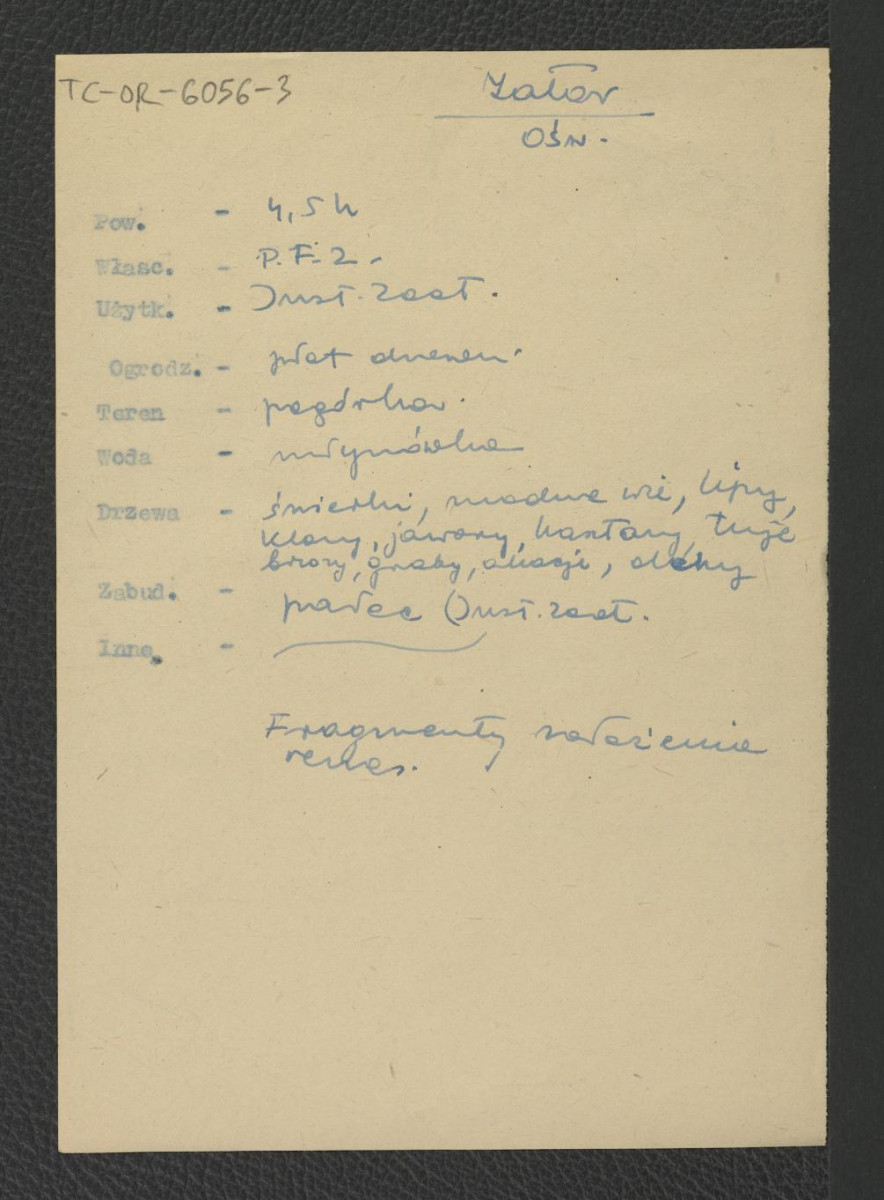 TC-OR-6056-3
Zator
Ośw.
Pow. - 4,5 h
Własc. - P.F.Z.
Użytk. - Inst. Zoot.
Ogrodz. - płot drewn.
Teren - pagórkow.
Woda - młynówka
Drzewa - świerki, modrzewie, lipy,
klony, jawory, kasztany, tuje
brzozy, graby, akacje, olchy
Zabud. - pałac (Inst. Zoot.
Inne, -
Fragmenty założenia
renes.